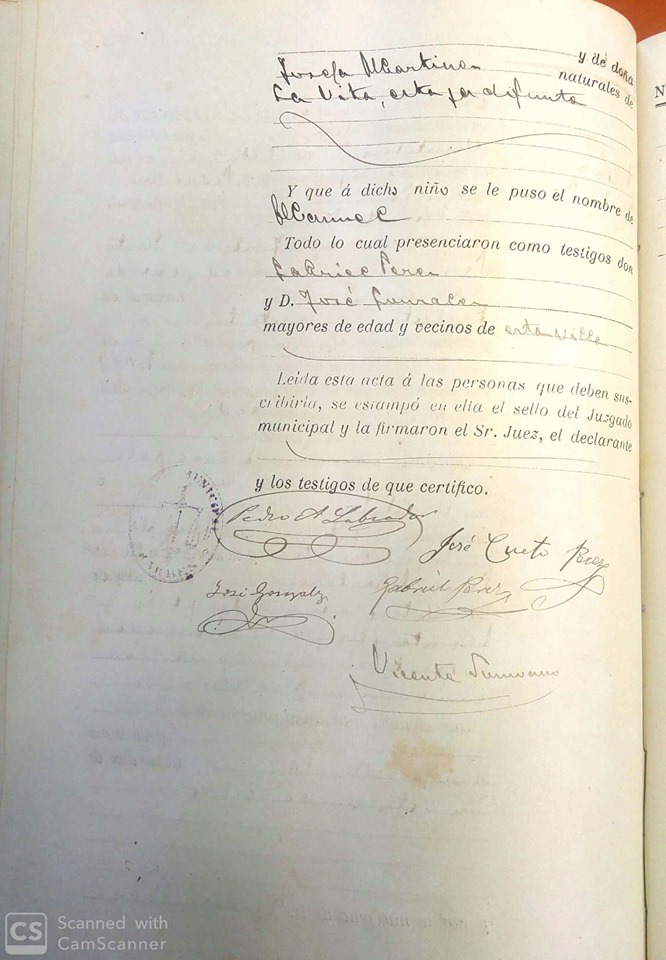 y de doña
Josefa Martinez naturales de
La Vita, esta ya difunta
Y que á dicho niño se le puso el nombre de
Manuel
Todo lo cual presenciaron como testigos don
Gabriel Perez
y D. José Gonzalez
mayores de edad y vecinos de esta villa
Leída esta acta á las personas que deben sus-
cribirla, se estampó en ella el sello del Juzgado
municipal y la firmaron el Sr. Juez, el declarante
y los testigos de que certifico.
Pedro A. Labrador
José Cueto Perez
José Gonzalez
Gabriel Perez
Vicente
N
CS Scanned with
CamScanner